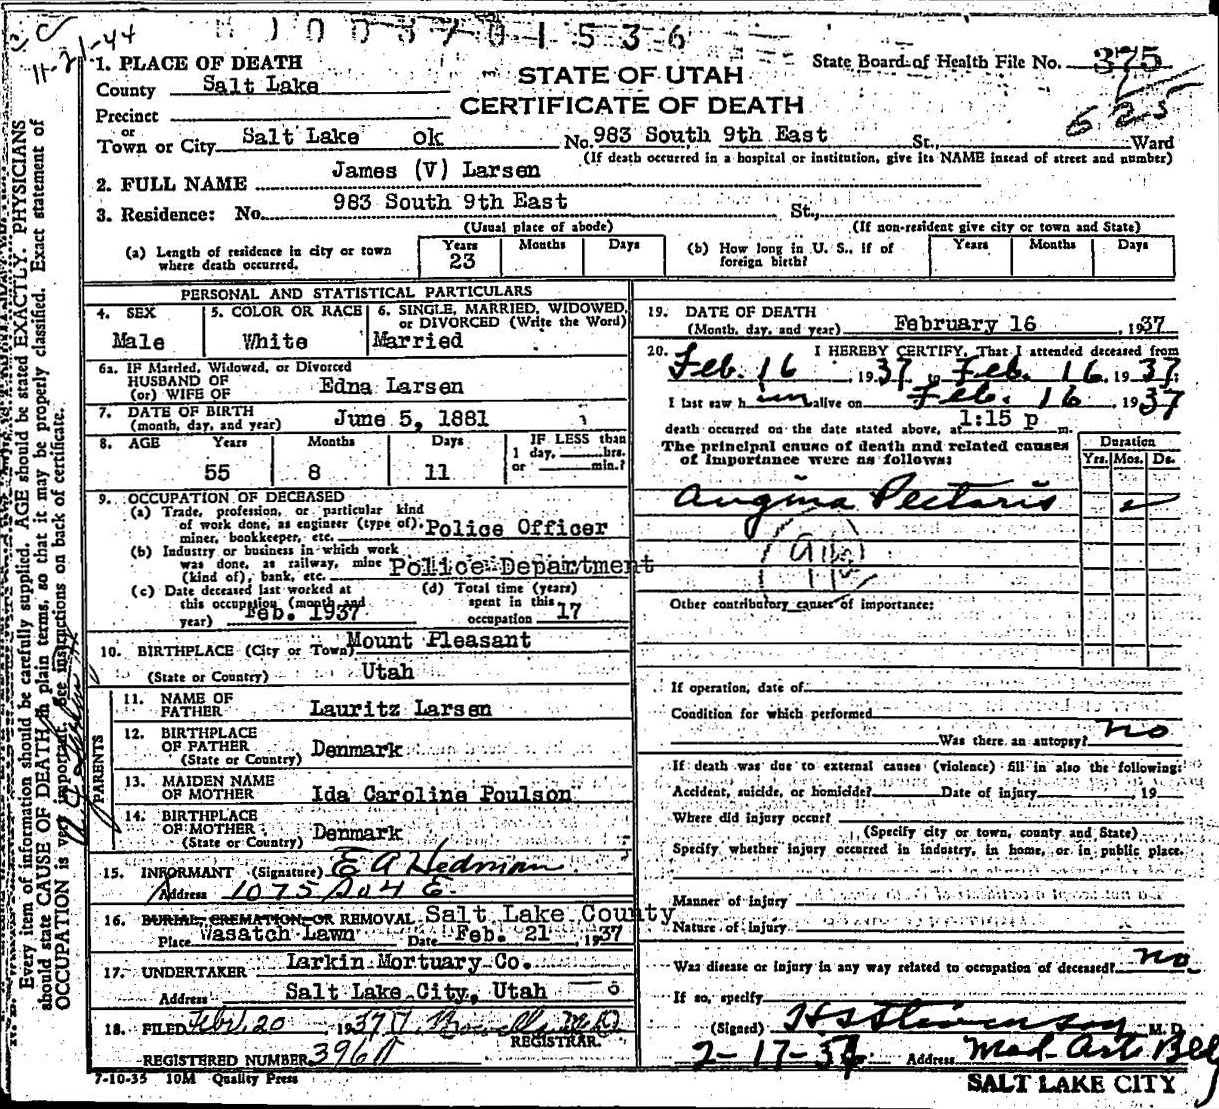 CC
11-21-44
H 1003701536
1. PLACE OF DEATH
County Salt Lake
STATE OF UTAH
CERTIFICATE OF DEATH
State Board of Health File No. 375
525
Precinct
or
Town or City Salt Lake ok No. 983 South 9th East St., Ward
(If death occurred in a hospital or institution, give its NAME instead of street and number)
2. FULL NAME James (V) Larsen
3. Residence: No. 983 South 9th East St.,
(Usual place of abode) (If non-resident give city or town and State)
(a) Length of residence in city or town where death occurred. Years 23 Months Days
(b) How long in U. S., if of foreign birth? Years Months Days
PERSONAL AND STATISTICAL PARTICULARS
4. SEX Male
5. COLOR OR RACE White
6. SINGLE, MARRIED, WIDOWED, or DIVORCED (Write the Word) Married
6a. IF Married, Widowed, or Divorced
HUSBAND OF
(or) WIFE OF Edna Larsen
7. DATE OF BIRTH
(month, day, and year) June 5, 1881
8. AGE Years Months Days IF LESS than
1 day, hrs.
or min.?
55 8 11
9. OCCUPATION OF DECEASED
(a) Trade, profession, or particular kind
of work done, as engineer (type of),
miner, bookkeeper, etc. Police Officer
(b) Industry or business in which work
was done, as railway, mine
(kind of), bank, etc. Police Department
(c) Date deceased last worked at
this occupation (month and
year) Feb. 1937
(d) Total time (years)
spent in this
occupation 17
10. BIRTHPLACE (City or Town) Mount Pleasant
(State or Country) Utah
PARENTS
11. NAME OF
FATHER Lauritz Larsen
12. BIRTHPLACE
OF FATHER
(State or Country) Denmark
13. MAIDEN NAME
OF MOTHER Ida Caroline Poulson
14. BIRTHPLACE
OF MOTHER
(State or Country) Denmark
15. INFORMANT (Signature) E A Hedman
Address 1075 So 4 E.
16. BURIAL, CREMATION, OR REMOVAL Salt Lake County
Place Wasatch Lawn Date Feb. 21, 1937
17. UNDERTAKER Larkin Mortuary Co.
Address Salt Lake City, Utah
18. FILED Feb. 20 1937 M.D.
REGISTRAR.
REGISTERED NUMBER 396
7-10-35 10M Quality Press
19. DATE OF DEATH
(Month, day, and year) February 16, 1937
20. I HEREBY CERTIFY, That I attended deceased from
Feb. 16, 1937 to Feb. 16, 1937;
I last saw h im alive on Feb. 16 1937
death occurred on the date stated above, at 1:15 p m.
The principal cause of death and related causes
of importance were as follows:
Duration
Yrs. Mos. Ds.
Angina Pectoris
Other contributory causes of importance:
If operation, date of
Condition for which performed
Was there an autopsy? no
If death was due to external causes (violence) fill in also the following:
Accident, suicide, or homicide? Date of injury 19
Where did injury occur?
(Specify city or town, county and State)
Specify whether injury occurred in industry, in home, or in public place.
Manner of injury
Nature of injury
Was disease or injury in any way related to occupation of deceased? no
If so, specify
(Signed) H S Stevenson M. D.
2-17-37 Address Med. Arts Bldg
SALT LAKE CITY
Every item of information should be carefully supplied. AGE should be stated EXACTLY. PHYSICIANS
should state CAUSE OF DEATH in plain terms, so that it may be properly classified. Exact statement of
OCCUPATION is very important. See instructions on back of certificate.